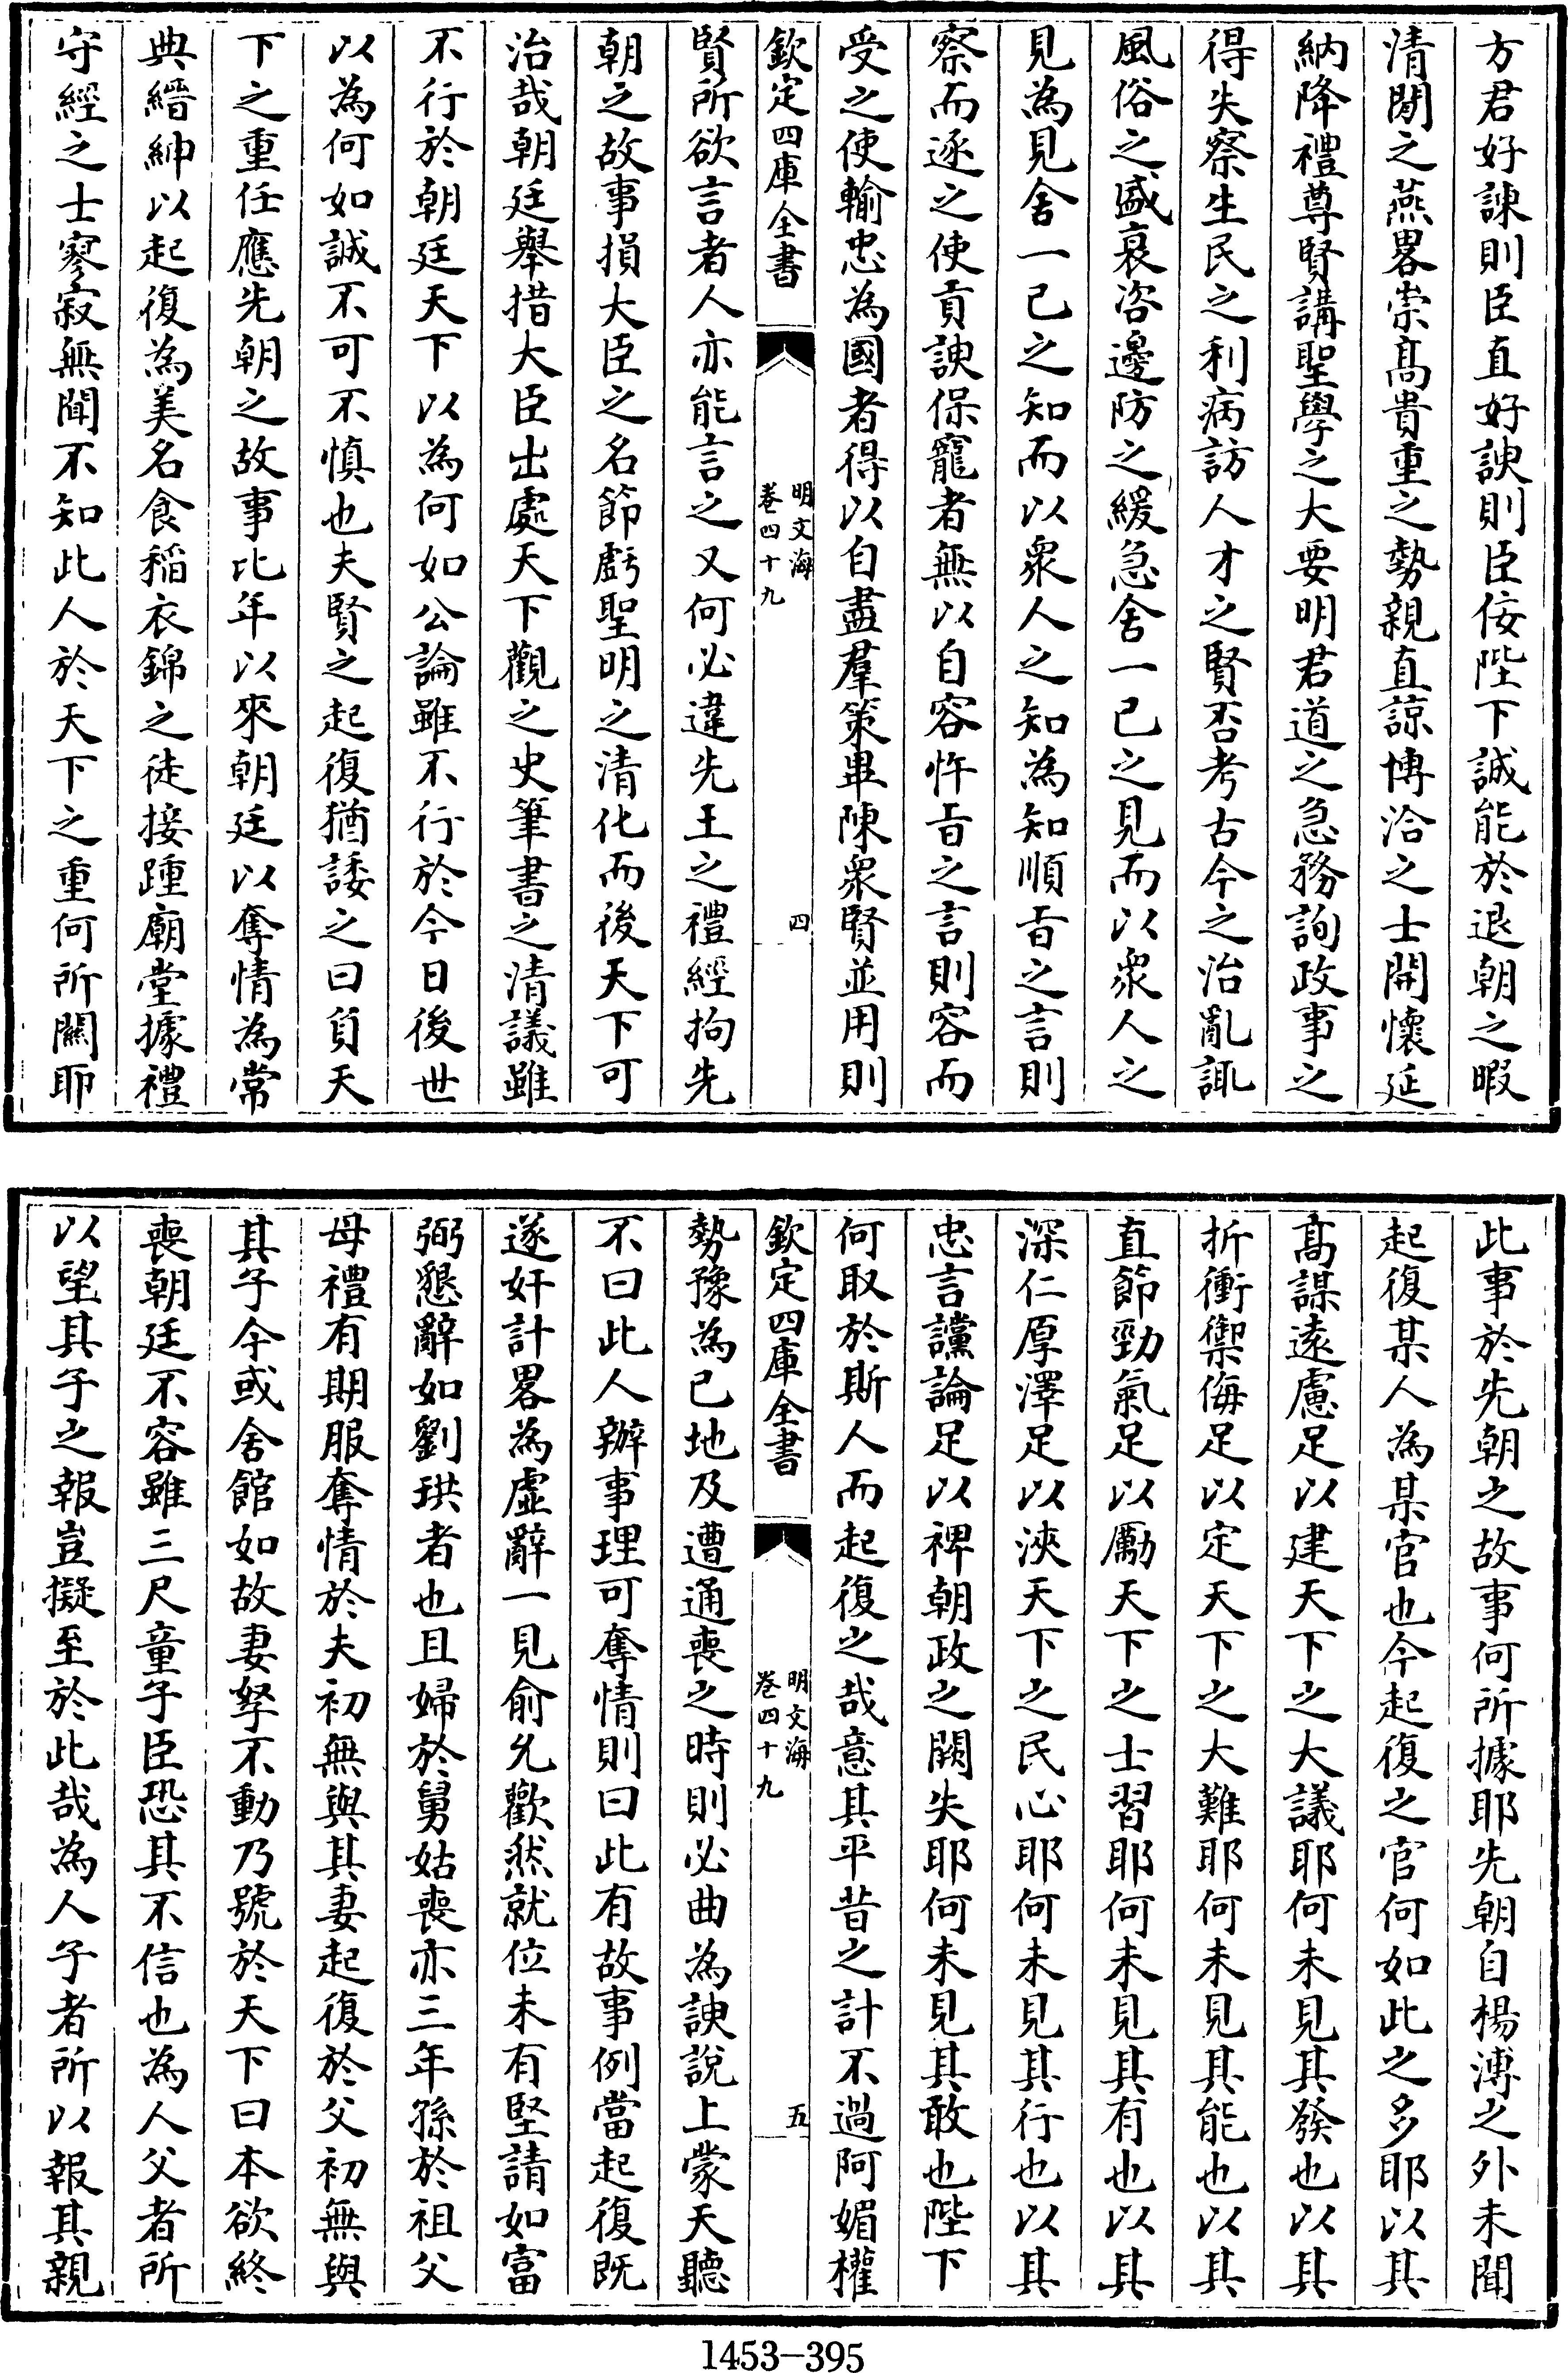 方君好諫則臣直好諛則臣佞陛下誠能於退朝之暇
清閒之燕畧崇髙貴重之勢親直諒博洽之士開懷延
納降禮尊賢講聖學之大要明君道之急務詢政事之
得失察生民之利病訪人才之賢否考古今之治亂諏
風俗之盛衰咨邊防之緩急舍一已之見而以衆人之
見為見舍一已之知而以衆人之知為知順㫖之言則
察而逐之使貢諛保寵者無以自容忤㫖之言則容而
受之使輸忠為國者得以自盡羣策畢陳衆賢並用則
欽定四庫全書
明文海
卷四十九
四
賢所欲言者人亦能言之又何必違先王之禮經拘先
朝之故事損大臣之名節虧聖明之清化而後天下可
治哉朝廷舉措大臣出處天下觀之史筆書之清議雖
不行於朝廷天下以為何如公論雖不行於今日後世
以為何如誠不可不慎也夫賢之起復猶諉之曰負天
下之重任應先朝之故事比年以來朝廷以奪情為常
典縉紳以起復為美名食稻衣錦之徒接踵廟堂據禮
守經之士寥寂無聞不知此人於天下之重何所關耶
此事於先朝之故事何所據耶先朝自楊溥之外未聞
起復某人為某官也今起復之官何如此之多耶以其
髙謀遠慮足以建天下之大議耶何未見其發也以其
折衝禦侮足以定天下之大難耶何未見其能也以其
直節勁氣足以勵天下之士習耶何未見其有也以其
深仁厚澤足以浹天下之民心耶何未見其行也以其
忠言讜論足以裨朝政之闕失耶何未見其敢也陛下
何取於斯人而起復之哉意其平昔之計不過阿媚權
欽定四庫全書
明文海
卷四十九
五
勢豫為已地及遭通喪之時則必曲為諛說上蒙天聽
不曰此人辦事理可奪情則曰此有故事例當起復既
遂奸計畧為虛辭一見俞允歡然就位未有堅請如富
弼懇辭如劉珙者也且婦於舅姑喪亦三年孫於祖父
母禮有期服奪情於夫初無與其妻起復於父初無與
其子今或舍館如故妻孥不動乃號於天下曰本欲終
喪朝廷不容雖三尺童子臣恐其不信也為人父者所
以望其子之報豈擬至於此哉為人子者所以報其親
1453-395